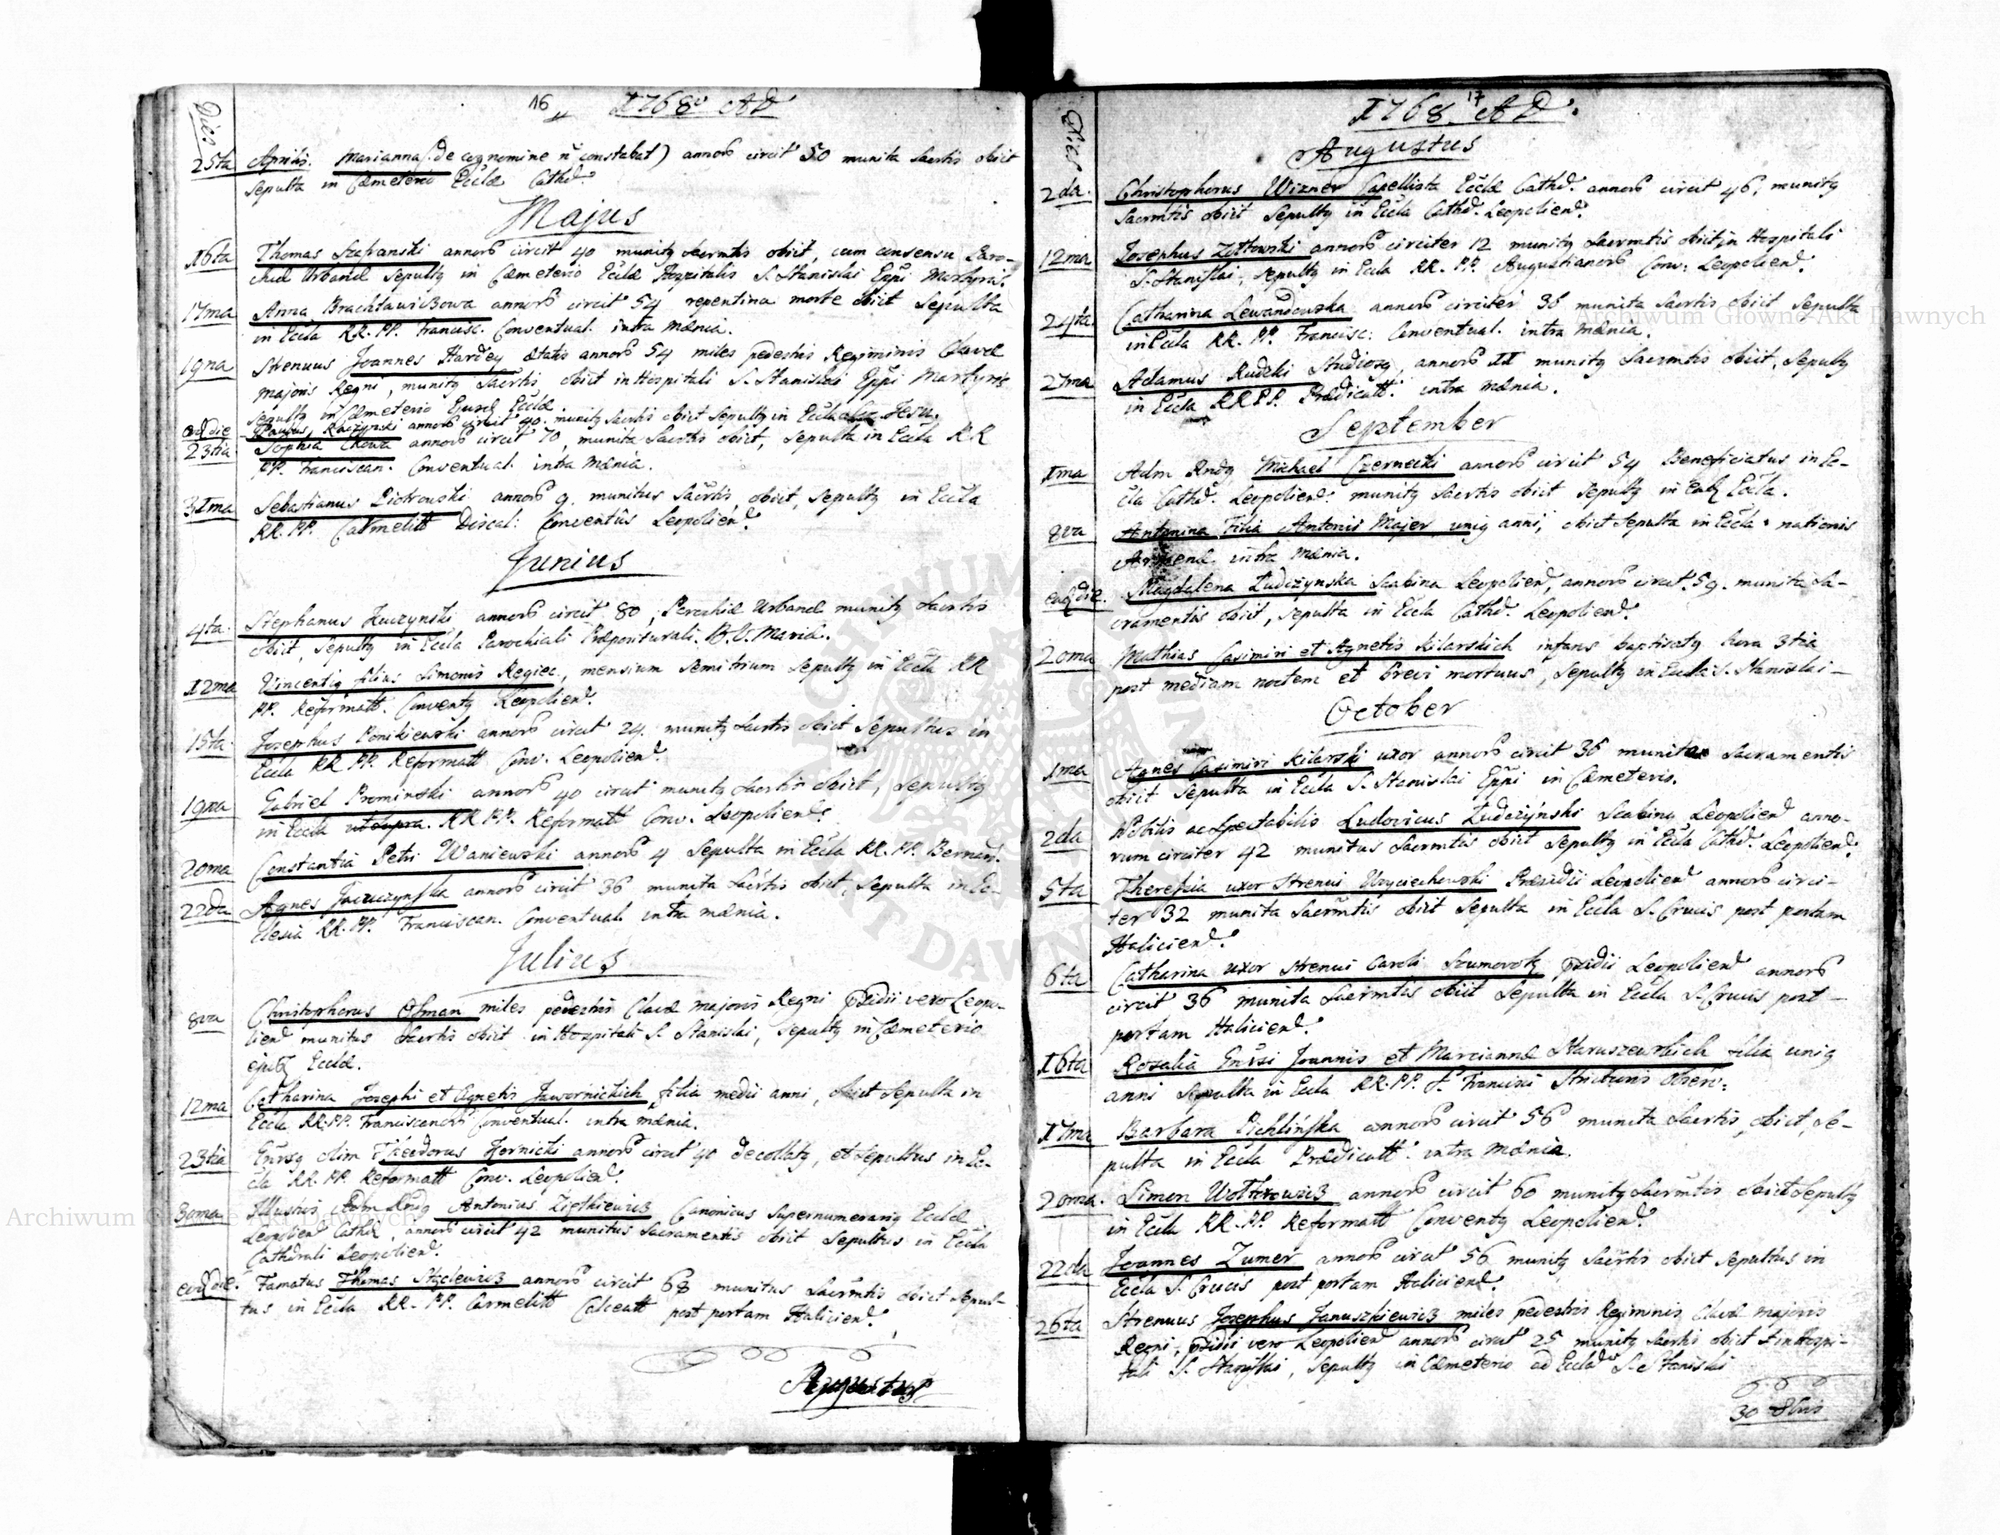 Dies
16 1768 AD
25ta Aprilis. Marianna (: de cognomine n constabat) annor circit 50 munita Sacrtis obiit
Sepulta in Cæmeterio Eccla Cathd.
Majus
16ta Thomas Szafranski annor circit 40 munitq Sacrmtis obiit, cum consensu Paro-
chiæ Urbanæ Sepultq in Cæmeterio Eccla Hospitalis S. Stanislai Eppi Martyris.
17ma Anna Brachławiczowa annor circit 54 repentina morte obiit Sepulta
in Eccla RR. PP. Francisc. Conventual. intra Mænia.
19na Strenuus Joannes Hardey Ætatis annor 54 miles pedestris Regiminis Clavæ
majoris Regni, munitq Sacrtis obiit in Hospitali S. Stanislai Eppi Martyris
sepultq in Cæmeterio Ejusd Eccla.
eod die Paulus Raczynski annor circit 40. munitq Sacrtis obiit Sepultq in Eccla Jesu.
23tia Sophia annor circit 70, munita Sacrtis obiit, Sepulta in Eccla RR
PP. Franciscan. Conventual. intra Mænia.
31ma Sebastianus Piotrowski annor 9. munitus Sacrtis obiit, Sepultq in Eccla
RR. PP. Carmelitt Discal: Conventûs Leopolien.
Junius
4ta. Stephanus Kuczynski annor circit 80, Parochiæ Urbanæ munitq Sacrtis
obiit, Sepultq in Eccla Parochiali Præpositurali. B.V. Mariæ.
12ma Vincentiq filius Simonis Regiec, mensium Semitrium Sepultq in Eccla RR
PP. Reformatt. Conventq Leopolien.
15ta. Josephus Ponikiewski annor circit 24. munitq Sacrtis obiit Sepultus in
Eccla RR PP. Reformatt Conv. Leopolien.
19na Gabriel Prominski annor 40 circit munitq Sacrtis obiit, Sepultq
in Eccla ut supra. RR.PP. Reformatt Conv. Leopolien.
20ma Constantia Petri Waniewski annor 4 Sepulta in Eccla RR. PP. Bernard.
22da Agnes annor circit 36 munita Sacrtis obiit, Sepulta in Ec-
clesia RR. PP. Franciscan. Conventual. intra mænia.
Julius
8va Christophorus Osman miles pedestris Clavæ majoris Regni Præsidii vero Leopo-
lien munitus Sacrtis obiit in Hospitali S. Stanislai, Sepultq in Cæmeterio
ejusq Eccla.
12ma Catharina Josephi et Agnetis Jawornickich filia medii anni, obiit Sepulta in
Eccla RR.PP. Franciscanor Conventual. intra mænia.
23tia olim Theodorus Hornicki annor circit 40 decollatq, et Sepultus in Ec-
cla RR. PP. Reformatt Conv. Leopolien.
30ma Illustris Adm Rndq Antonius Zietkiewicz Canonicus Supernumerariq Eccla
Leopolien Cathd, annor circit 42 munitus Sacramentis obiit Sepultus in Eccla
Cathedrali Leopolien.
eod die. Famatus Thomas Stecewicz annor circit 68 munitus Sacrmtis obiit Sepul-
tus in Eccla RR. PP. Carmelitt Calceatt post portam Halicien.
Augustus
Dies
17
1768 AD.
Augustus
2da. Christophorus Wizner Capellista Eccla Cathd. annor circit 46, munitq
Sacrmtis obiit Sepultq in Eccla Cathd. Leopolien.
12ma Josephus Zottowski annor circiter 12 munitq Sacrmtis obiit in Hospitali
S. Stanislai, Sepultq in Eccla RR. PP. Augustianor Conv: Leopolien.
24ta. Catharina Lewandowska annor circiter 36 munita Sacrtis obiit Sepulta
in Eccla RR. PP. Francisc: Conventual. intra Mænia.
27ma Adamus Rudzki Studiosq, annor 11 munitq Sacrmtis obiit, Sepultq
in Eccla RR PP. Prædicatt. intra mænia.
September
1ma Adm Rndq Michael Czernecki annor circit 54 Beneficiatus in Ec-
cla Cathd. Leopolien: munitq Sacrtis obiit Sepultq in Eccla.
8va Antonina Filia Antonii Majer uniq anni, obiit Sepulta in Eccla nationis
Armenæ intra mænia.
eod die. Magdalena Ludczynska Scabina Leopolien, annor circit 59. munita Sa-
cramentis obiit, Sepulta in Eccla Cathd. Leopolien.
20ma Mathias Casimiri et Agnetis Kilarskich infans baptisatq hora 3tia
post mediam noctem et brevi mortuus, Sepultq in Eccla S. Stanislai
October
1ma Agnes Casimiri Kilarski uxor annor circit 36 munita Sacramentis
obiit Sepulta in Eccla S. Stanislai Eppi in Cæmeterio.
2da Nobilis ac Spectabilis Ludovicus Ludczynski Scabinq Leopolien anno-
rum circiter 42 munitus Sacrmtis obiit Sepultq in Eccla Cathd. Leopolien.
5ta Theresia uxor Strenui Wyciechowski Præsidii Leopolien annor circi-
ter 32 munita Sacrmtis obiit Sepulta in Eccla S. Crucis post portam
Halicien.
6ta Catharina uxor Strenui Caroli Præsidii Leopolien annor
circit 36 munita Sacrmtis obiit Sepulta in Eccla S. Crucis post
portam Halicien.
16ta Rosalia Joannis et Mariannæ Staruszewskich filia uniq
anni Sepulta in Eccla RR. PP. S. Francisci Strictioris Observ:
17ma Barbara Pichlinska annor circit 56 munita Sacrtis, obiit, Se-
pulta in Eccla Prædicatt. intra Mænia.
20ma. Simon Wotkowicz annor circit 60 munitq Sacrmtis obiit Sepultq
in Eccla RR. PP. Reformatt Conventq Leopolien.
22da Joannes Zumer annor circit 56 munitq Sacrtis obiit Sepultus in
Eccla S. Crucis post portam Halicien.
26ta Strenuus Josephus Januszkiewicz miles pedestris Regiminis Clavæ majoris
Regni, Præsidii vero Leopolien annor circit 25 munitq Sacrtis obiit in Hospi-
tali S. Stanislai, Sepultq in Cæmeterio ad Eccla S. Stanislai
30 8bris
Archiwum Główne Akt Dawnych
Archiwum Główne Akt Dawnych
ARCHIWUM GŁÓWNE AKT DAWNYCH